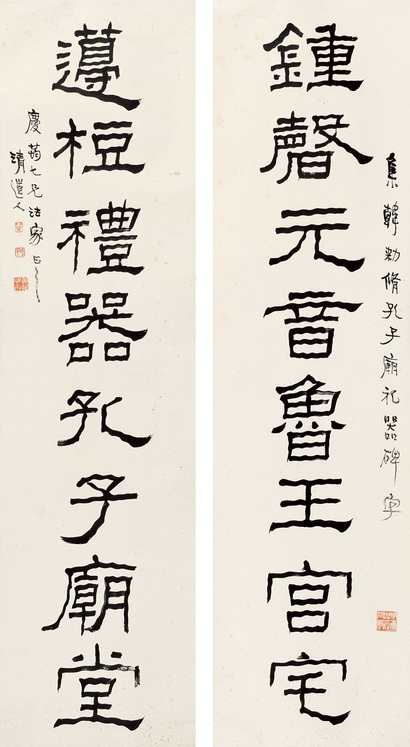 集韓勅脩孔子廟礼器碑字
鍾磬元音魯王宮宅
籩桓禮器孔子廟堂
慶蕅七兄法家正之
清道人